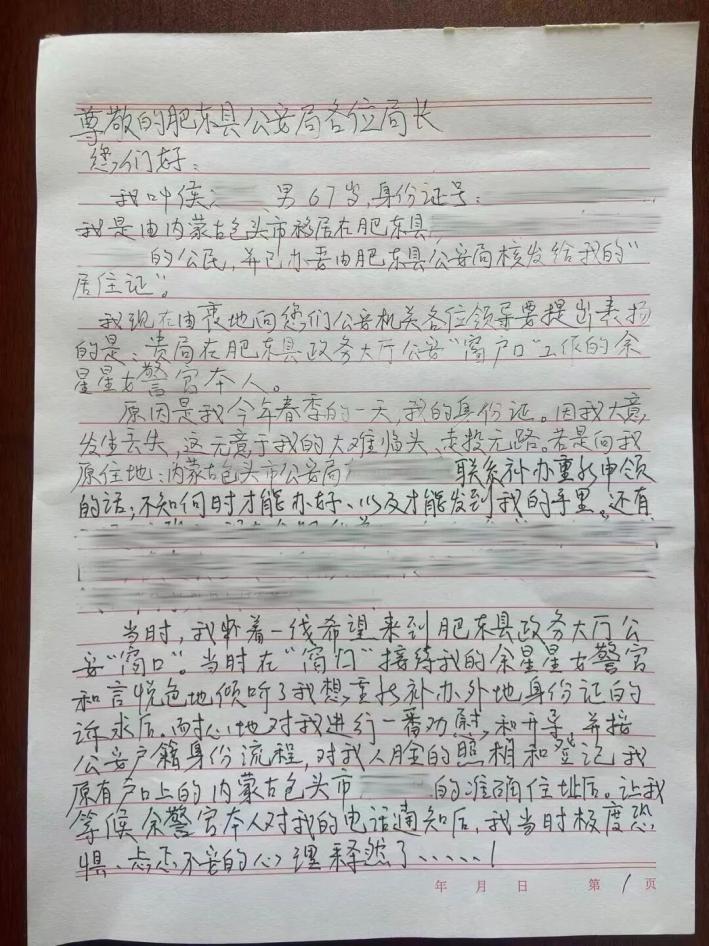 尊敬的肥东县公安局各位局长
您们好：
我叫侯 男67岁,身份证号：
我是由内蒙古包头市移居在肥东县
的公民,并已办妥由肥东县公安局核发给我的“
居住证”。
我现在由衷地向您们公安机关各位领导要提出表扬
的是：贵局在肥东县政务大厅公安“窗户口”工作的余
星星女警官本人。
原因是我今年春季的一天,我的身份证。因我大意,
发生丢失,这无意于我的大难临头、走投无路。若是向我
原住地：内蒙古包头市公安局 联系补办重新申领
的话；不知何时才能办好、以及才能发到我的手里。还有
当时,我抱着一线希望来到肥东县政务大厅公
安“窗口”。当时在“窗口”接待我的余星星女警官
和言悦色地倾听了我想重新补办外地身份证的
诉求后。而耐心地对我进行一番劝慰,和开导,并按
公安户籍身份流程,对我人脸的照相和登记我
原有户口上的内蒙古包头市 的准确住址后。让我
等候余警官本人对我的电话通知后,我当时极度恐
惧、忐忑不安的心理释然了……！
年 月 日 第 1 页